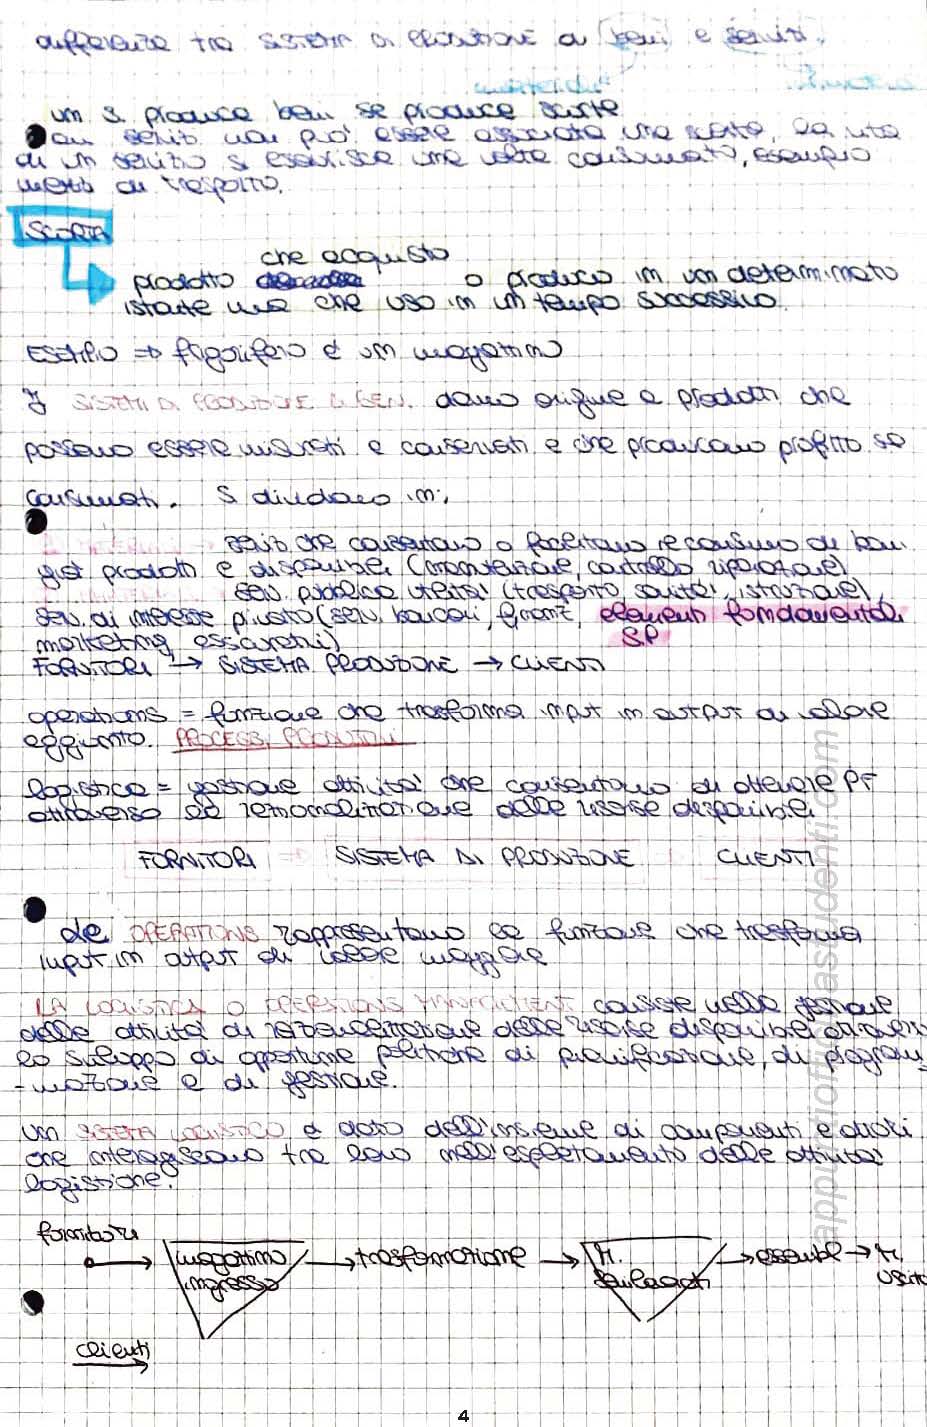 differenza tra SISTEMA DI PRODUZIONE di beni e servizi.
materiali
un s. produce beni se produce scorte
ai servizi non può essere associata una scorta, la vita
di un servizio si esaurisce una volta consumato, esempio
mezzi di trasporto.
SCORTA
che acquisto
prodotto o produco in un determinato
istante ma che uso in un tempo successivo.
ESEMPIO ⇒ frigorifero è un magazzino
I SISTEMI DI PRODUZIONE DI BENI danno origine a prodotti che
possono essere misurati e conservati e che producono profitto se
consumati. Si dividono in:
servizi che consentono o facilitano il consumo di beni
già prodotti e disponibili (manutenzione, controllo, riparazione)
serv. pubblica utilità (trasporto, sanità, istruzione),
serv. di interesse privato (serv. bancari, finanz, elementi fondamentali
marketing, assicurativi) SP
FORNITORI → SISTEMA PRODUZIONE → CLIENTI
operations = funzione che trasforma input in output di valore
aggiunto. PROCESSI PRODUTTIVI
logistica = gestione attività che consentono di ottenere PF
attraverso la razionalizzazione delle risorse disponibili
FORNITORI → SISTEMA DI PRODUZIONE CLIENTI
Le OPERATIONS rappresentano la funzione che trasforma
input in output di valore maggiore
LA LOGISTICA O OPERATIONS MANAGEMENT consiste nella gestione
delle attività di razionalizzazione delle risorse disponibili attraverso
lo sviluppo di opportune politiche di pianificazione, di program
-mazione e di gestione.
un SISTEMA LOGISTICO è dato dall'insieme di componenti e attori
che interagiscono tra loro nell'espletamento delle attività
logistiche.
fornitori
→ magazzino → trasformazione → M. → assembl → M.
ingresso semilavorati uscita
clienti
appuntiofficinastudenti.com
4